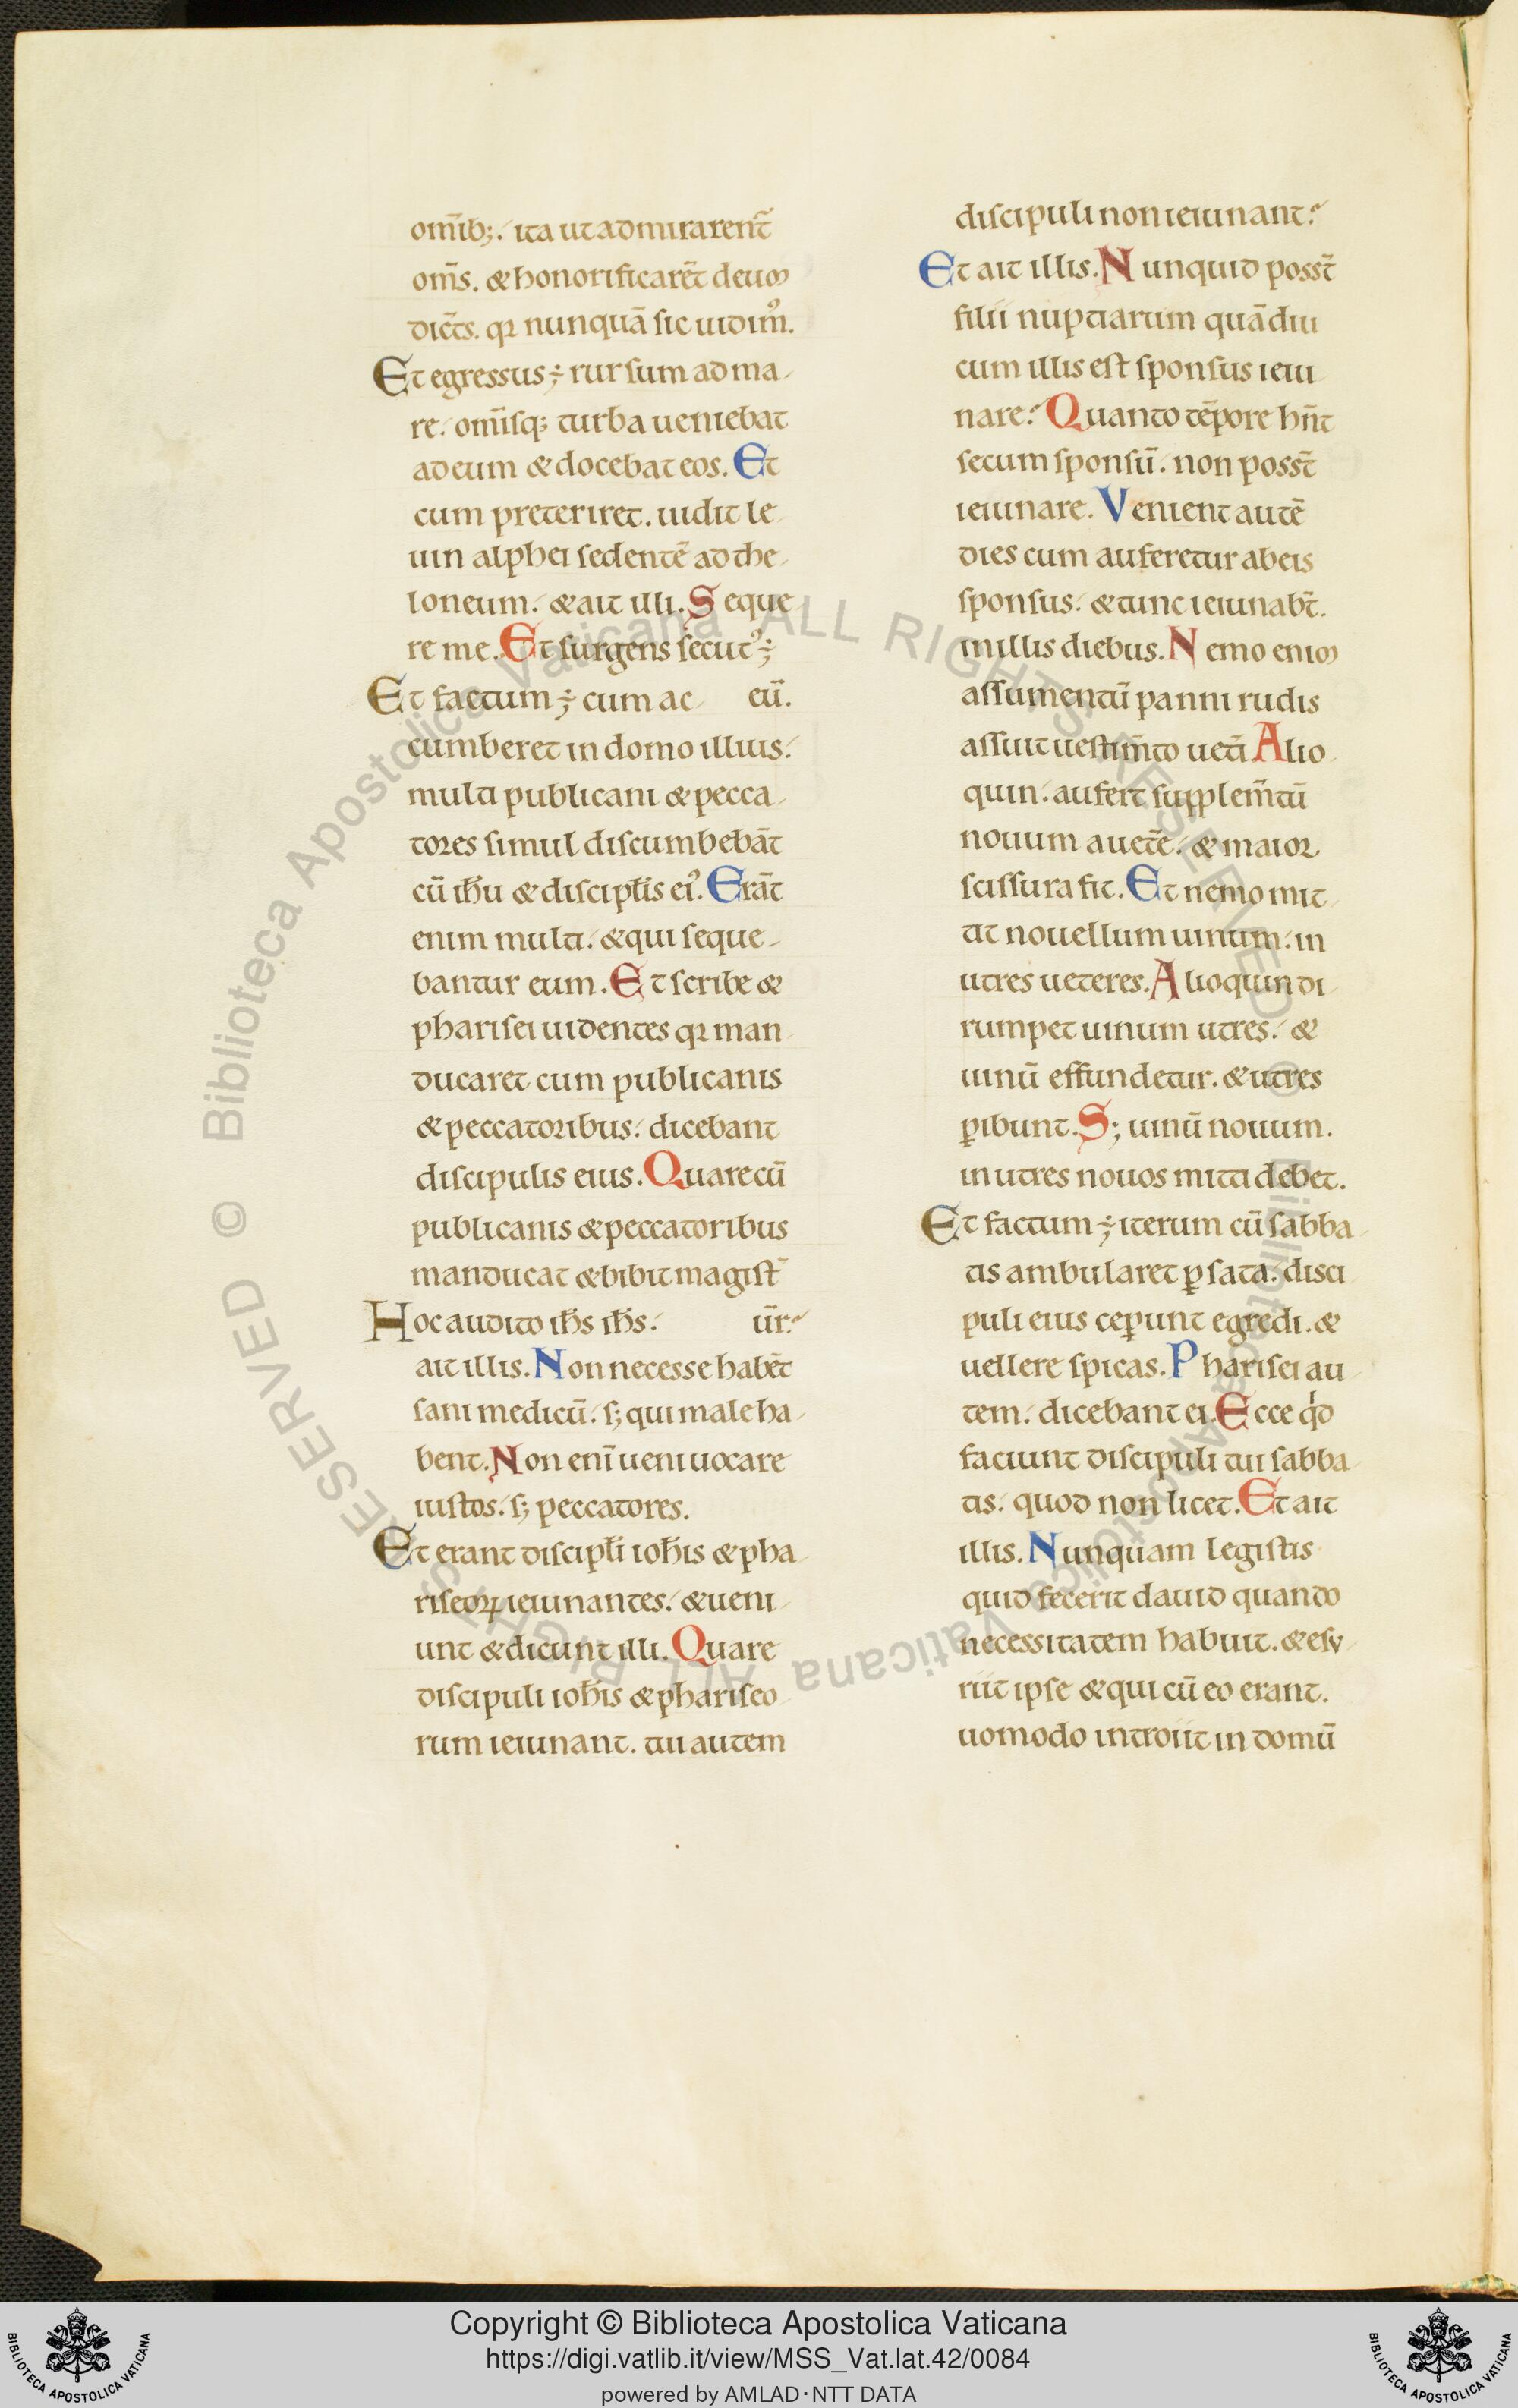 om̄ib;. ita ut admirarent̄
om̄s. & honorificarēt deum
dicēts. qꝛ nunquā sic uidimꝰ.
Et egressus ÷ rursum ad ma-
re. om̄isq; turba ueniebat
ad eum & docebat eos. Et
cum preteriret. uidit le-
uin alphei sedentē ad the-
loneum. & ait illi. Seque-
re me. Et surgens secutꝰ ÷
Et factum ÷ cum ac- eū.
cumberet in domo illius.
multi publicani & pecca-
tores simul discumbebāt
cū ih̄u & discipl̄is eiꝰ. Erāt
enim multi. & qui seque-
bantur eum. Et scribe &
pharisei uidentes qꝛ man-
ducaret cum publicanis
& peccatoribus. dicebant
discipulis eius. Quare cū
publicanis & peccatoribus
manducat & bibit magist̄
Hoc audito ih̄s ih̄s. ūr.
ait illis. Non necesse habēt
sani medicū. s; qui male ha-
bent. Non eni̅ ueni uocare
iustos. s; peccatores.
Et erant discipl̄i ioh̄is & pha-
riseoꝝ ieiunantes. & ueni-
unt & dicunt illi. Quare
discipuli ioh̄is & phariseo-
rum ieiunant. tui autem
discipuli non ieiunant.
Et ait illis. Nunquid possт̄
filii nuptiarum quādiu
cum illis est sponsus ieiu-
nare. Quanto tēpore hn̄t
secum sponsū. non posst̄
ieiunare. Venient autē
dies cum auferetur ab eis
sponsus. & tunc ieiunabt̄.
in illis diebus. Nemo enim
assumentū panni rudis
assuit uestim̄to uet̄i Alio-
quin. aufert supplem̄tū
nouum a uet̄e. & maior
scissura fit. Et nemo mit-
tit nouellum uinum. in
utres ueteres. Alioquin di-
rumpet uinum utres. &
uinū effundetur. & utres
ꝑibunt. S; uinū nouum.
in utres nouos mitti debet.
Et factum ÷ iterum cū sabba-
tis ambularet ꝑ sata. disci-
puli eius ceꝑunt egredi. &
uellere spicas. Pharisei au-
tem. dicebant ei. Ecce qd̓
faciunt discipuli tui sabba-
tis. quod non licet. Et ait
illis. Nunquam legistis
quid fecerit dauid quando
necessitatem habuit. & esv-
riit ipse & qui cū eo erant.
uomodo introiit in domū
Copyright © Biblioteca Apostolica Vaticana
https://digi.vatlib.it/view/MSS_Vat.lat.42/0084
powered by AMLAD·NTT DATA